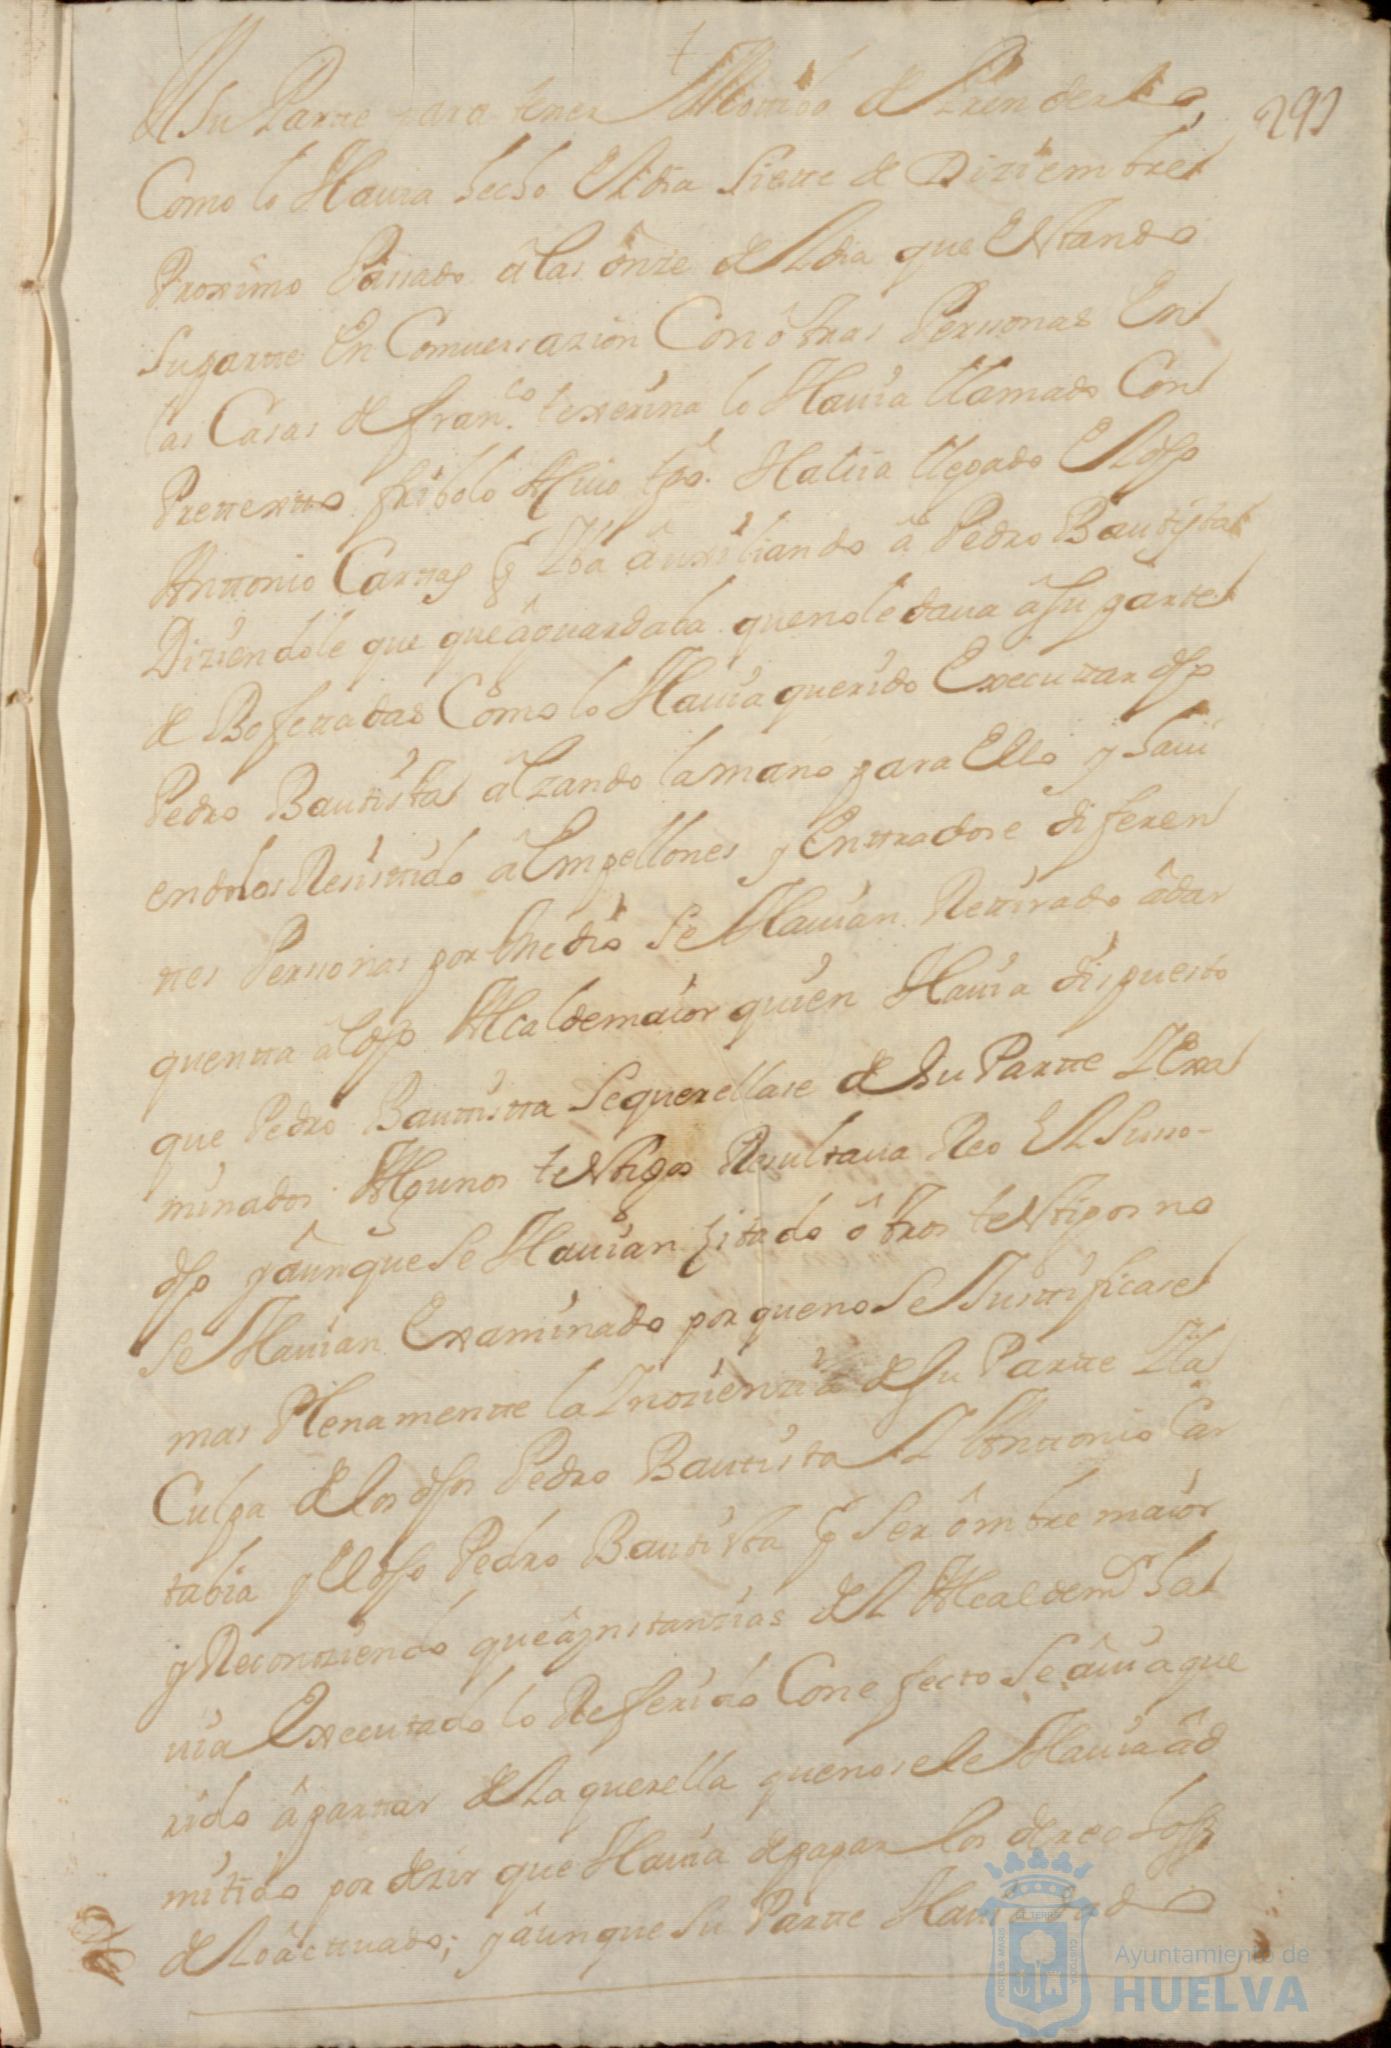 †
291
de Su Parte para tener Mottibo de Prenderlo,
Como lo Hauia hecho El dia Siette de Diziembre
Proximo Passado â las ônze del dia que Estando
Suparte En Comuersazion Con ôtras Personas En
las Casas de fran.co texerina lo Hauia llamado Con
Prettextto fribolo A cuio tpô. Hauia llegado El dho
Anttonio Carttas q Iba âuxiliando â Pedro Bautista
Diziendole que queâguardaba quenole daua âSu parte
de Bofettadas Como lo Hauia querido Executtar dho
Pedro Bautista âlzando lamano para Ello y haui
endolos Resisttido â Empellones y Entradose diferen
ttes Personas por medio Se Hauian Rettirado âdar
quentta âl dho Alcaldemaior quien Hauia dispuesto
que Pedro Bauttistta Sequerellase de Su Partte I Exa
minados Algunos testigos Resultaua Reo El Suso-
dho yâunque Se Hauian zitado ôtros testigos no
Se Hauian Examinado por queno Se Justtificase
mas Plenamentte la Inozenzia de Su Partte I la
Culpa de los dhos Pedro Bautista I Anttonio Car
tabia y El dho Pedro Bautista q Ser ômbre maior
y Reconoziendo queâ ynstanzias del Alcaldemr ha
uia Executado lo Referido Con efecto Se âuia que
rido âparttar de La querella quenosele Hauia âd
mitido por dezir que Hauia de pagar los derechos
de Loâcttuado; yâunque Su Partte Hauia dado
Ayuntamiento de
HUELVA